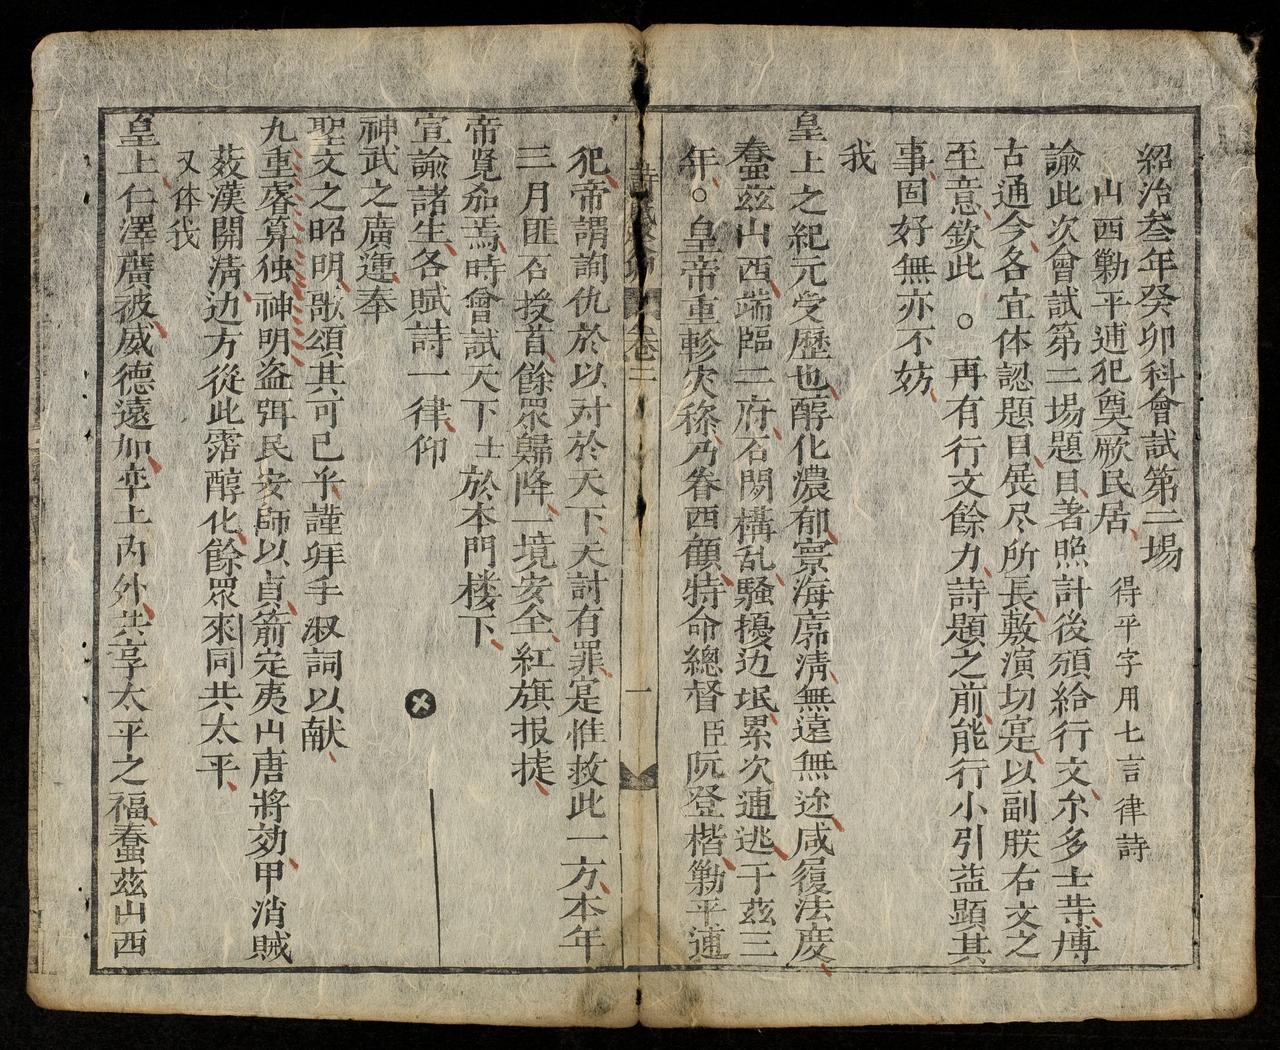 紹治叁年癸卯科會試第二場
山西勦平逋犯奠厥民居 得平字用七言律詩
諭此次會試第二場題目著照計後頒給行文尒多士等博
古通今各宜体認題目展尽所長敷演切寔以副朕右文之
至意欽此 ○ 再有行文餘力詩題之前能行小引益顕其
事固好無亦不妨
我
皇上之紀元受歷也醇化濃郁寰海廓清無遠無迩咸履法度
蠢茲山西端臨二府石閉構乱騷擾边垊累次逋逃于茲三
年○皇帝重軫灾稌乃眷西顧特命總督臣阮登楷勦平逋
卷二
一
犯帝謂詢仇於以对於天下天討有罪寔惟救此一方本年
三月匪石授首餘眾歸降一境安全紅旗报捷
帝覽茄焉時會試天下士於本門楼下
宣諭諸生各賦詩一律仰
神武之廣運奉
聖文之昭明歌頌其可已乎謹拜手叔詞以献
九重睿算独神明益弭民安師以貞箭定夷山唐將効甲消賊
薮漢開清边方從此霑醇化餘眾來同共太平
又体我
皇上仁澤廣被威德遠加率土內外共享太平之福蠢茲山西